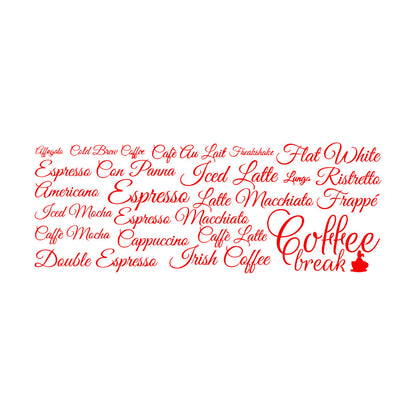 Affogato Cold Brew Coffee Cafè Au Lait Freakshake Flat White
Espresso Con Panna Iced Latte Lungo Ristretto
Americano Espresso Latte Macchiato Frappé
Iced Mocha Espresso Macchiato
Caffè Mocha Cappuccino Caffè Latte Coffee
Double Espresso Irish Coffee break